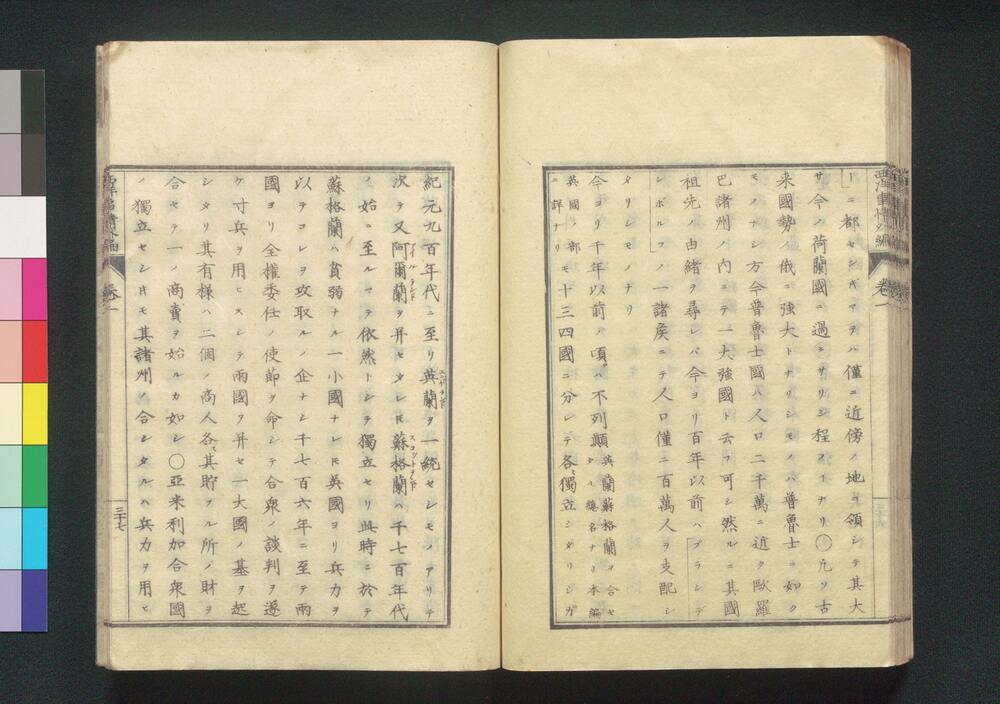 西洋事情外編 卷一
ーニ都セシ𪜈マアハ僅ニ近傍ノ地ヲ領シテ其大
サ今ノ荷蘭國ニ過キサリシ程ノヿナリ〇凡ソ古
来國勢ノ俄ニ強大トナリシモノハ普魯士ニ如ク
モノナシ方今普魯士國ハ人口二千萬ニ近ク歐羅
巴諸州ノ内ニテ一大強國ト云フ可シ然ルニ其國
祖先ノ由緒ヲ尋レバ今ヨリ百年以前ハブランデ
ンボルフノ一諸侯ニテ人口僅ニ百萬人ヲ支配シ
タリシモノナリ
今ヨリ千年以前ノ頃ハ不列顛英蘭蘇格蘭ヲ合セシ總名ナリ本編
英國ノ部ニ詳ナリモ十三四國ニ分レテ各〻獨立シタリシガ
紀元九百年代ニ至リ英蘭ヲ一統セシモノアリテ
次テ又阿爾蘭ヲ并セタレ𪜈蘇格蘭ハ千七百年代
ノ始ニ至ルマデ依然トシテ獨立セリ此時ニ於テ
蘇格蘭ハ貧弱ナル一小國ナレ𪜈英國ヨリ兵力ヲ
以テコレヲ攻取ルノ企ナシ千七百六年ニ至テ兩
國ヨリ全權委任ノ使節ヲ命シテ合衆ノ談判ヲ遂
ケ寸兵ヲ用ヒスシテ兩國ヲ并セ一大國ノ基ヲ起
シタリ其有様ハ二個ノ商人各〻其貯フル所ノ財ヲ
合セテ一ノ商賣ヲ始ルカ如シ〇亞米利加合衆國
ノ獨立セシ𪜈モ其諸州ノ合シタルハ兵力ヲ用ヒ
卷一
三十七